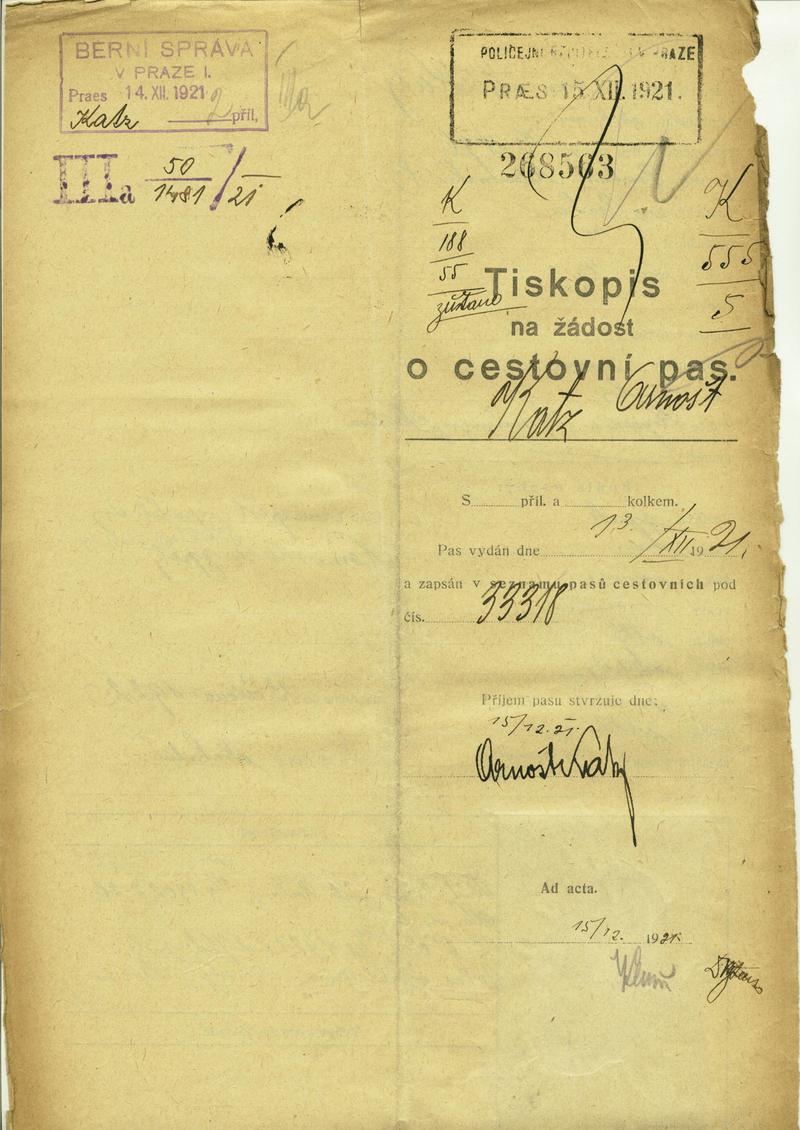 BERNÍ SPRÁVA
V PRAZE I.
Praes 14. XII. 1921
Katz 2 příl.
IIIa 50/1481/21
POLICEJNÍ ŘEDITELSTVÍ V PRAZE
PRÆS 15 XII. 1921.
268563
K
188
55
K
555
5
Tiskopis
na žádost
o cestovní pas.
Katz Arnošt
S příl. a kolkem.
Pas vydán dne 13/XII 1921.
a zapsán v seznamu pasů cestovních pod
čís. 33318
Příjem pasu stvrzuje dne:
15/12.21.
Arnošt Katz
Ad acta.
15/12. 1921.